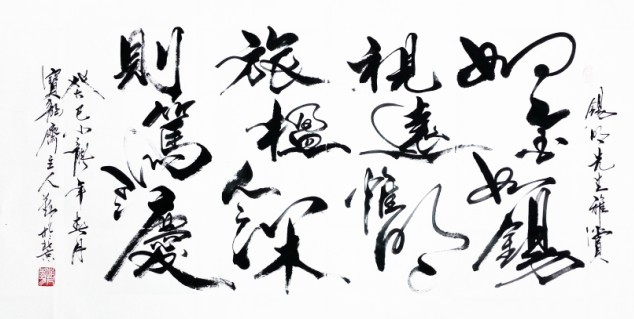 錫明先生雅賞
如金如錫
視遠惟明
旅楹深
則篤其慶
癸巳小龍年春月
寶齋主人於